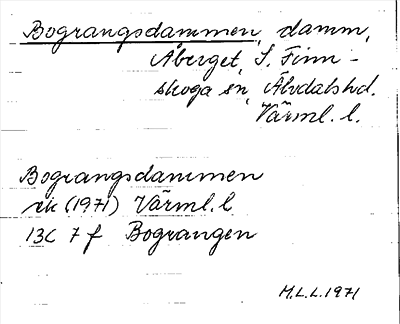 Bograngsdammen, damm,
Åberget, S. Finn-
skoga sn, Älvdals hd.
Värml. l.
Bograngsdammen
ek (1971) Värml. l.
13C 7 f Bograngen
M.L.L. 1971